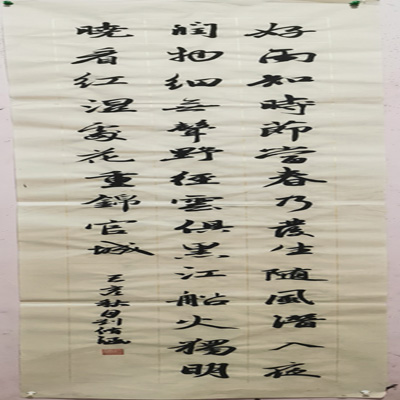 好雨知時節當春乃發生隨風潛入夜
潤物細無聲野徑雲俱黑江船火獨明
曉看紅濕處花重錦官城
己亥秋